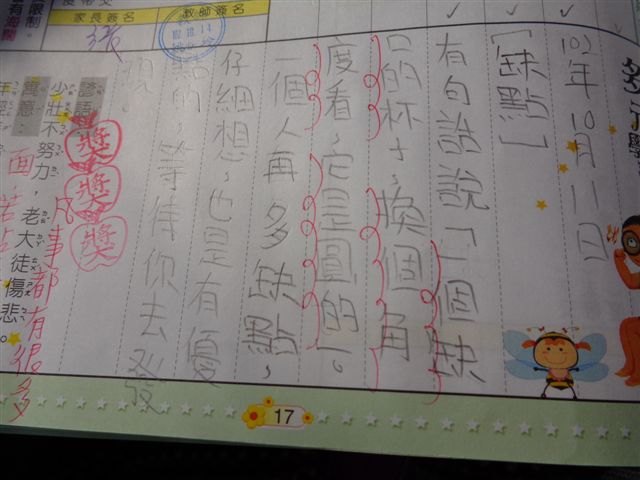 102年10月11日
[缺點]
有句話說「一個缺
口的杯子,換個角
度看,它是圓的」。
一個人再多缺點,
仔細想,也是有優
點的,等待你去發
現
獎
獎
獎
諺語:
少壯不努力,老大徒傷悲。
寓意:
凡事都有很多
面
家長簽名
教師簽名
17